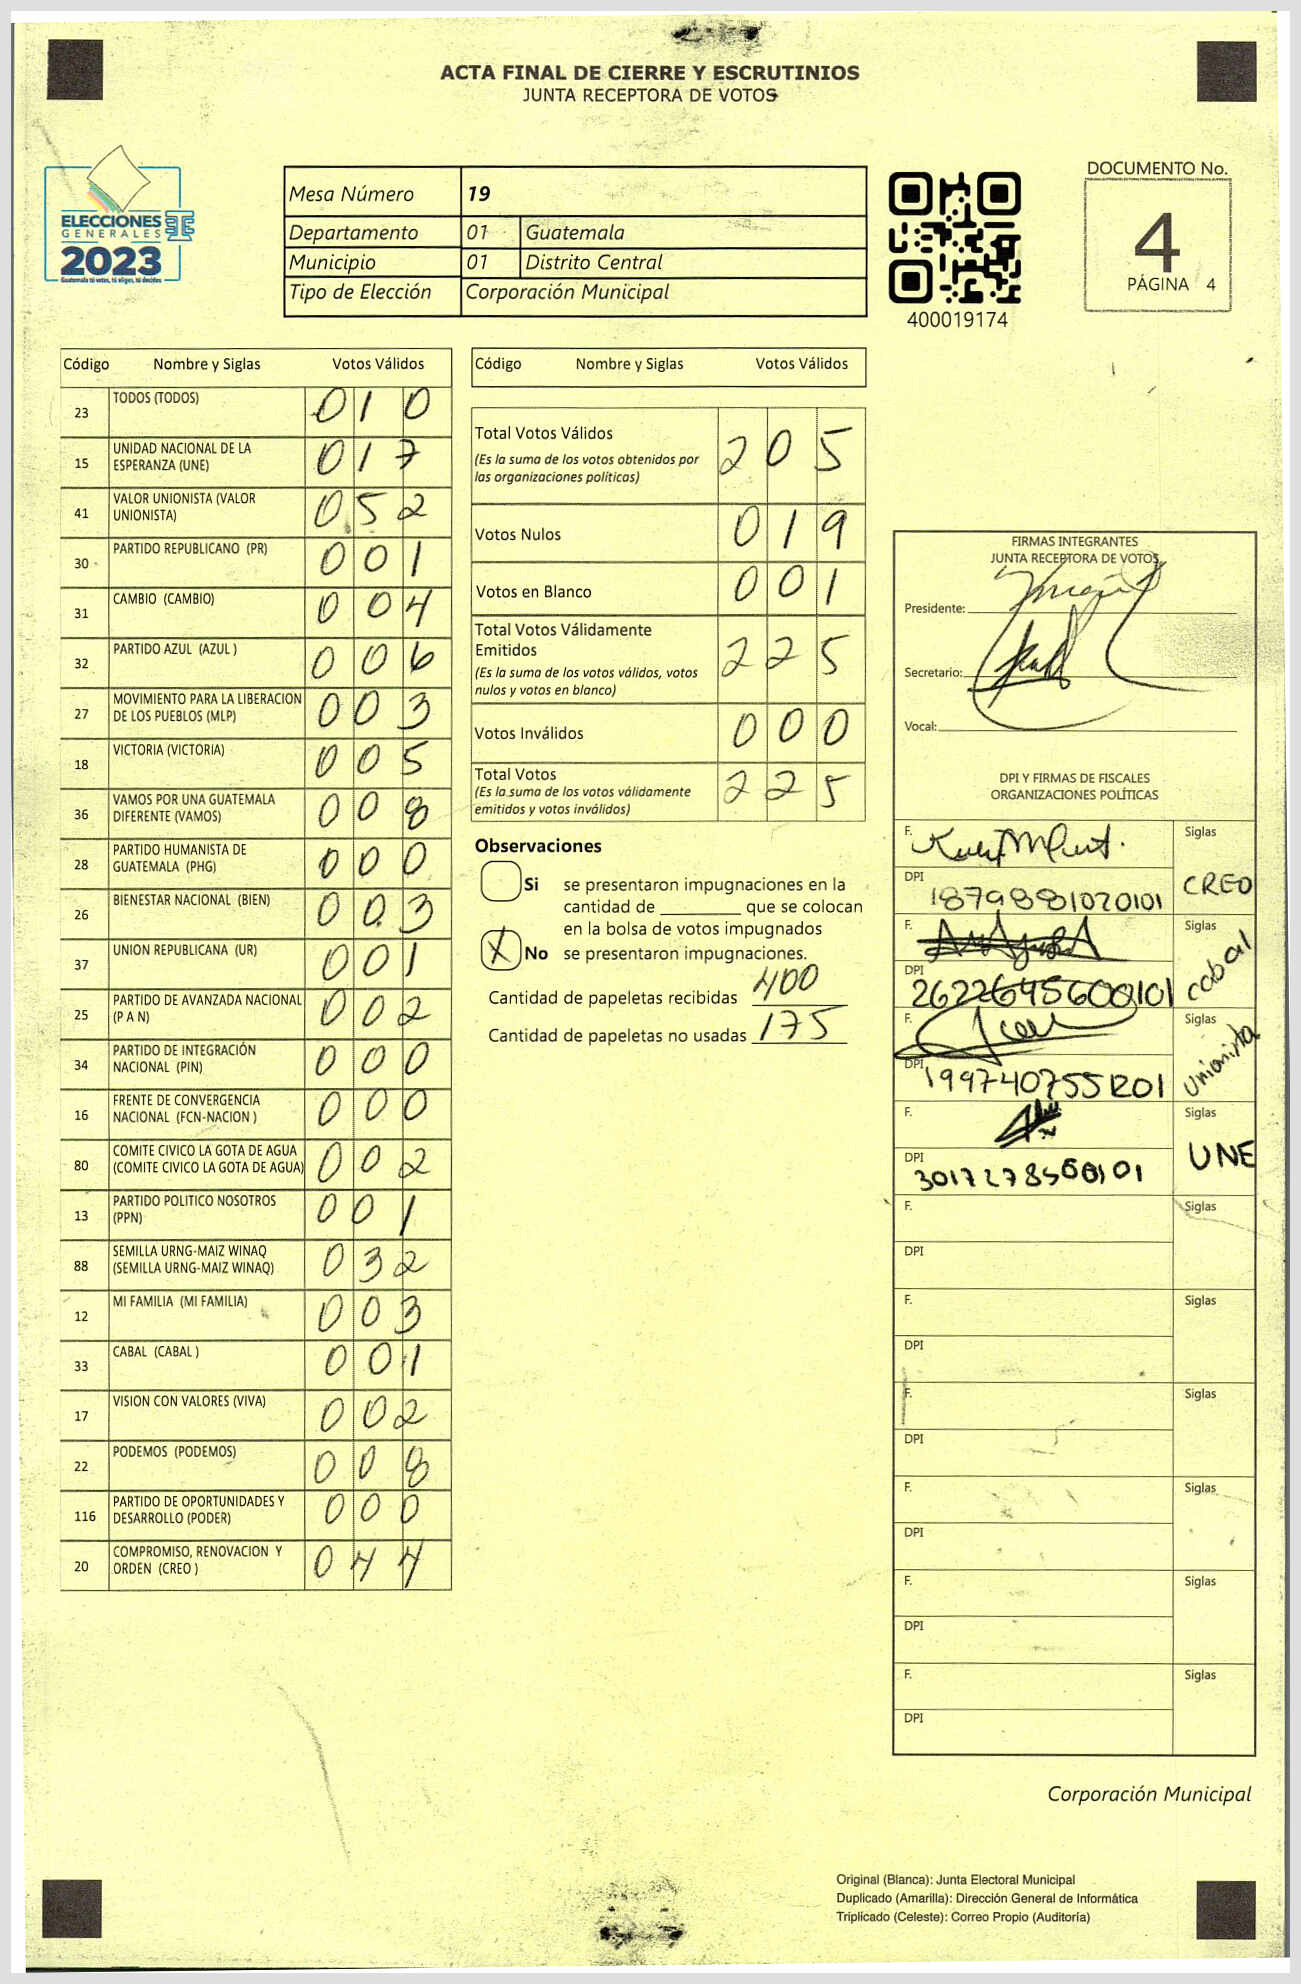 ACTA FINAL DE CIERRE Y ESCRUTINIOS
JUNTA RECEPTORA DE VOTOS
ELECCIONES
GENERALES
2023
Guatemala tú votes, tú eliges, tú decides
Mesa Número 19
Departamento 01 Guatemala
Municipio 01 Distrito Central
Tipo de Elección Corporación Municipal
400019174
DOCUMENTO No.
4
PÁGINA 4
Código Nombre y Siglas Votos Válidos
23 TODOS (TODOS) 010
15 UNIDAD NACIONAL DE LA
ESPERANZA (UNE) 017
41 VALOR UNIONISTA (VALOR
UNIONISTA) 052
30 PARTIDO REPUBLICANO (PR) 001
31 CAMBIO (CAMBIO) 004
32 PARTIDO AZUL (AZUL ) 006
27 MOVIMIENTO PARA LA LIBERACION
DE LOS PUEBLOS (MLP) 003
18 VICTORIA (VICTORIA) 005
36 VAMOS POR UNA GUATEMALA
DIFERENTE (VAMOS) 008
28 PARTIDO HUMANISTA DE
GUATEMALA (PHG) 000
26 BIENESTAR NACIONAL (BIEN) 003
37 UNION REPUBLICANA (UR) 001
25 PARTIDO DE AVANZADA NACIONAL
(P A N) 002
34 PARTIDO DE INTEGRACIÓN
NACIONAL (PIN) 000
16 FRENTE DE CONVERGENCIA
NACIONAL (FCN-NACION ) 000
80 COMITE CIVICO LA GOTA DE AGUA
(COMITE CIVICO LA GOTA DE AGUA) 002
13 PARTIDO POLITICO NOSOTROS
(PPN) 001
88 SEMILLA URNG-MAIZ WINAQ
(SEMILLA URNG-MAIZ WINAQ) 032
12 MI FAMILIA (MI FAMILIA) 003
33 CABAL (CABAL ) 001
17 VISION CON VALORES (VIVA) 002
22 PODEMOS (PODEMOS) 008
116 PARTIDO DE OPORTUNIDADES Y
DESARROLLO (PODER) 000
20 COMPROMISO, RENOVACION Y
ORDEN (CREO ) 044
Código Nombre y Siglas Votos Válidos
Total Votos Válidos 205
(Es la suma de los votos obtenidos por
las organizaciones políticas)
Votos Nulos 019
Votos en Blanco 001
Total Votos Válidamente
Emitidos 225
(Es la suma de los votos válidos, votos
nulos y votos en blanco)
Votos Inválidos 000
Total Votos 225
(Es la suma de los votos válidamente
emitidos y votos inválidos)
Observaciones
Si se presentaron impugnaciones en la
cantidad de ________ que se colocan
en la bolsa de votos impugnados
X No se presentaron impugnaciones.
Cantidad de papeletas recibidas 400
Cantidad de papeletas no usadas 175
FIRMAS INTEGRANTES
JUNTA RECEPTORA DE VOTOS
Presidente:
Secretario:
Vocal:
DPI Y FIRMAS DE FISCALES
ORGANIZACIONES POLÍTICAS
F. Siglas
DPI 1879881020101 CREO
F. Siglas
DPI 2622645600101 cabal
F. Siglas
DPI 1997407551201 Unionista
F. Siglas
DPI 3017278560101 UNE
F. Siglas
DPI
F. Siglas
DPI
F. Siglas
DPI
F. Siglas
DPI
F. Siglas
DPI
F. Siglas
DPI
Corporación Municipal
Original (Blanca): Junta Electoral Municipal
Duplicado (Amarilla): Dirección General de Informática
Triplicado (Celeste): Correo Propio (Auditoría)